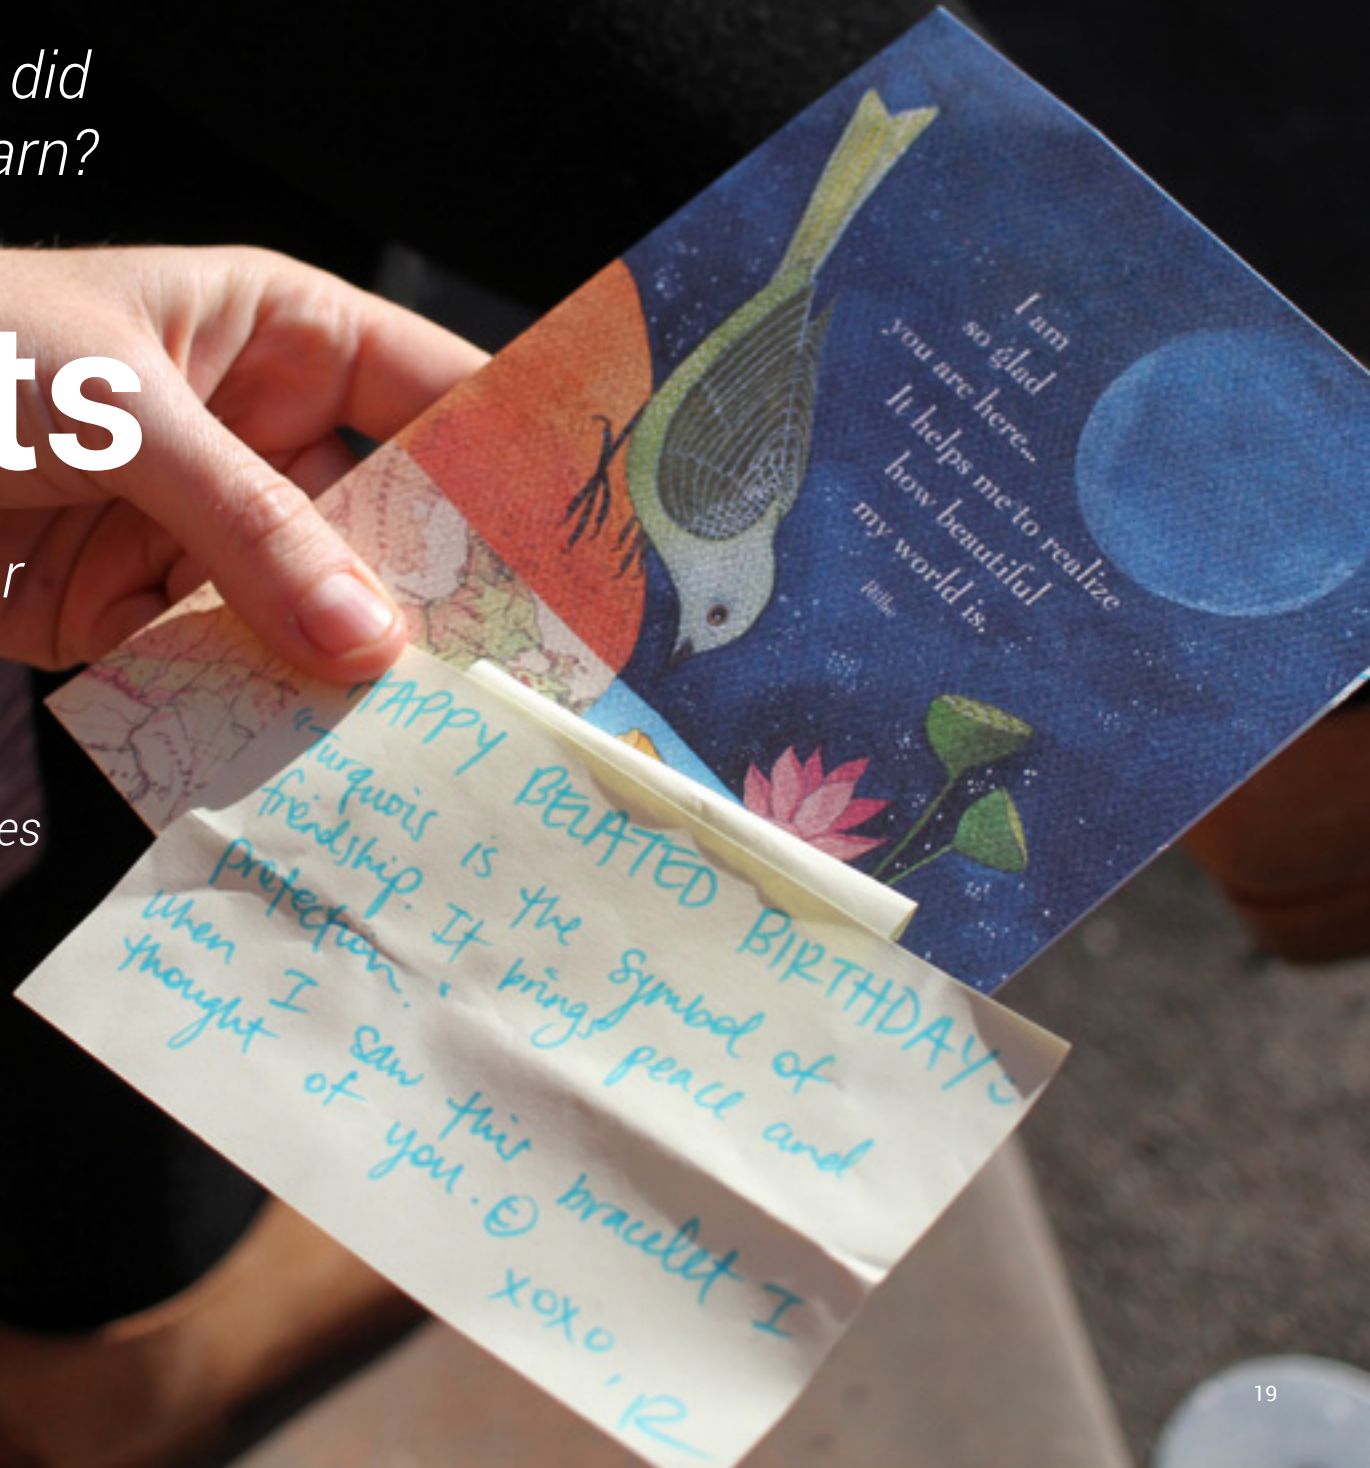 did
arn?
ts
r
es
I am
so glad
you are here...
It helps me to realize
how beautiful
my world is.
Rilke
HAPPY BELATED BIRTHDAY
"Turquois is the symbol of
friendship. It brings peace and
protection."
When I saw this bracelet I
thought of you.
xoxo, R
19